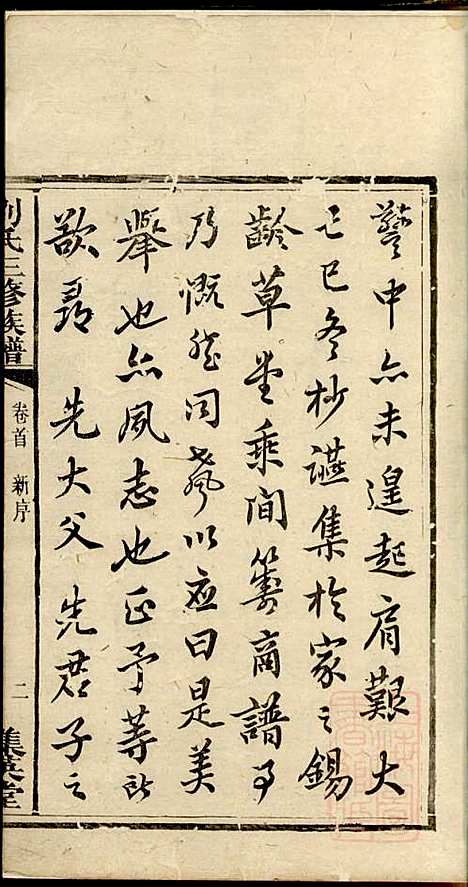 謦中亦未遑起肩艱大
己巳冬杪讌集於家之錫
齡草堂乘間籌商譜事
乃慨然同聲以應曰是美
舉也亦夙志也正予等所
欲承先大父先君子之
劉氏三修族譜
卷首 新序
二
集英堂